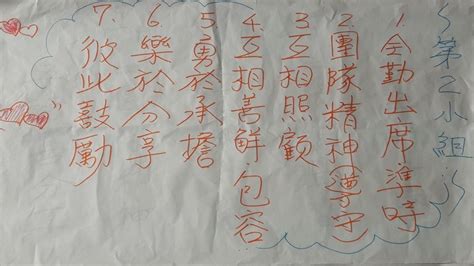 第2小組
1.全勤出席準時
2.團隊精神(遵守)
3.互相照顧
4.互相善解、包容
5.勇於承擔
6.樂於分享
7.彼此鼓勵